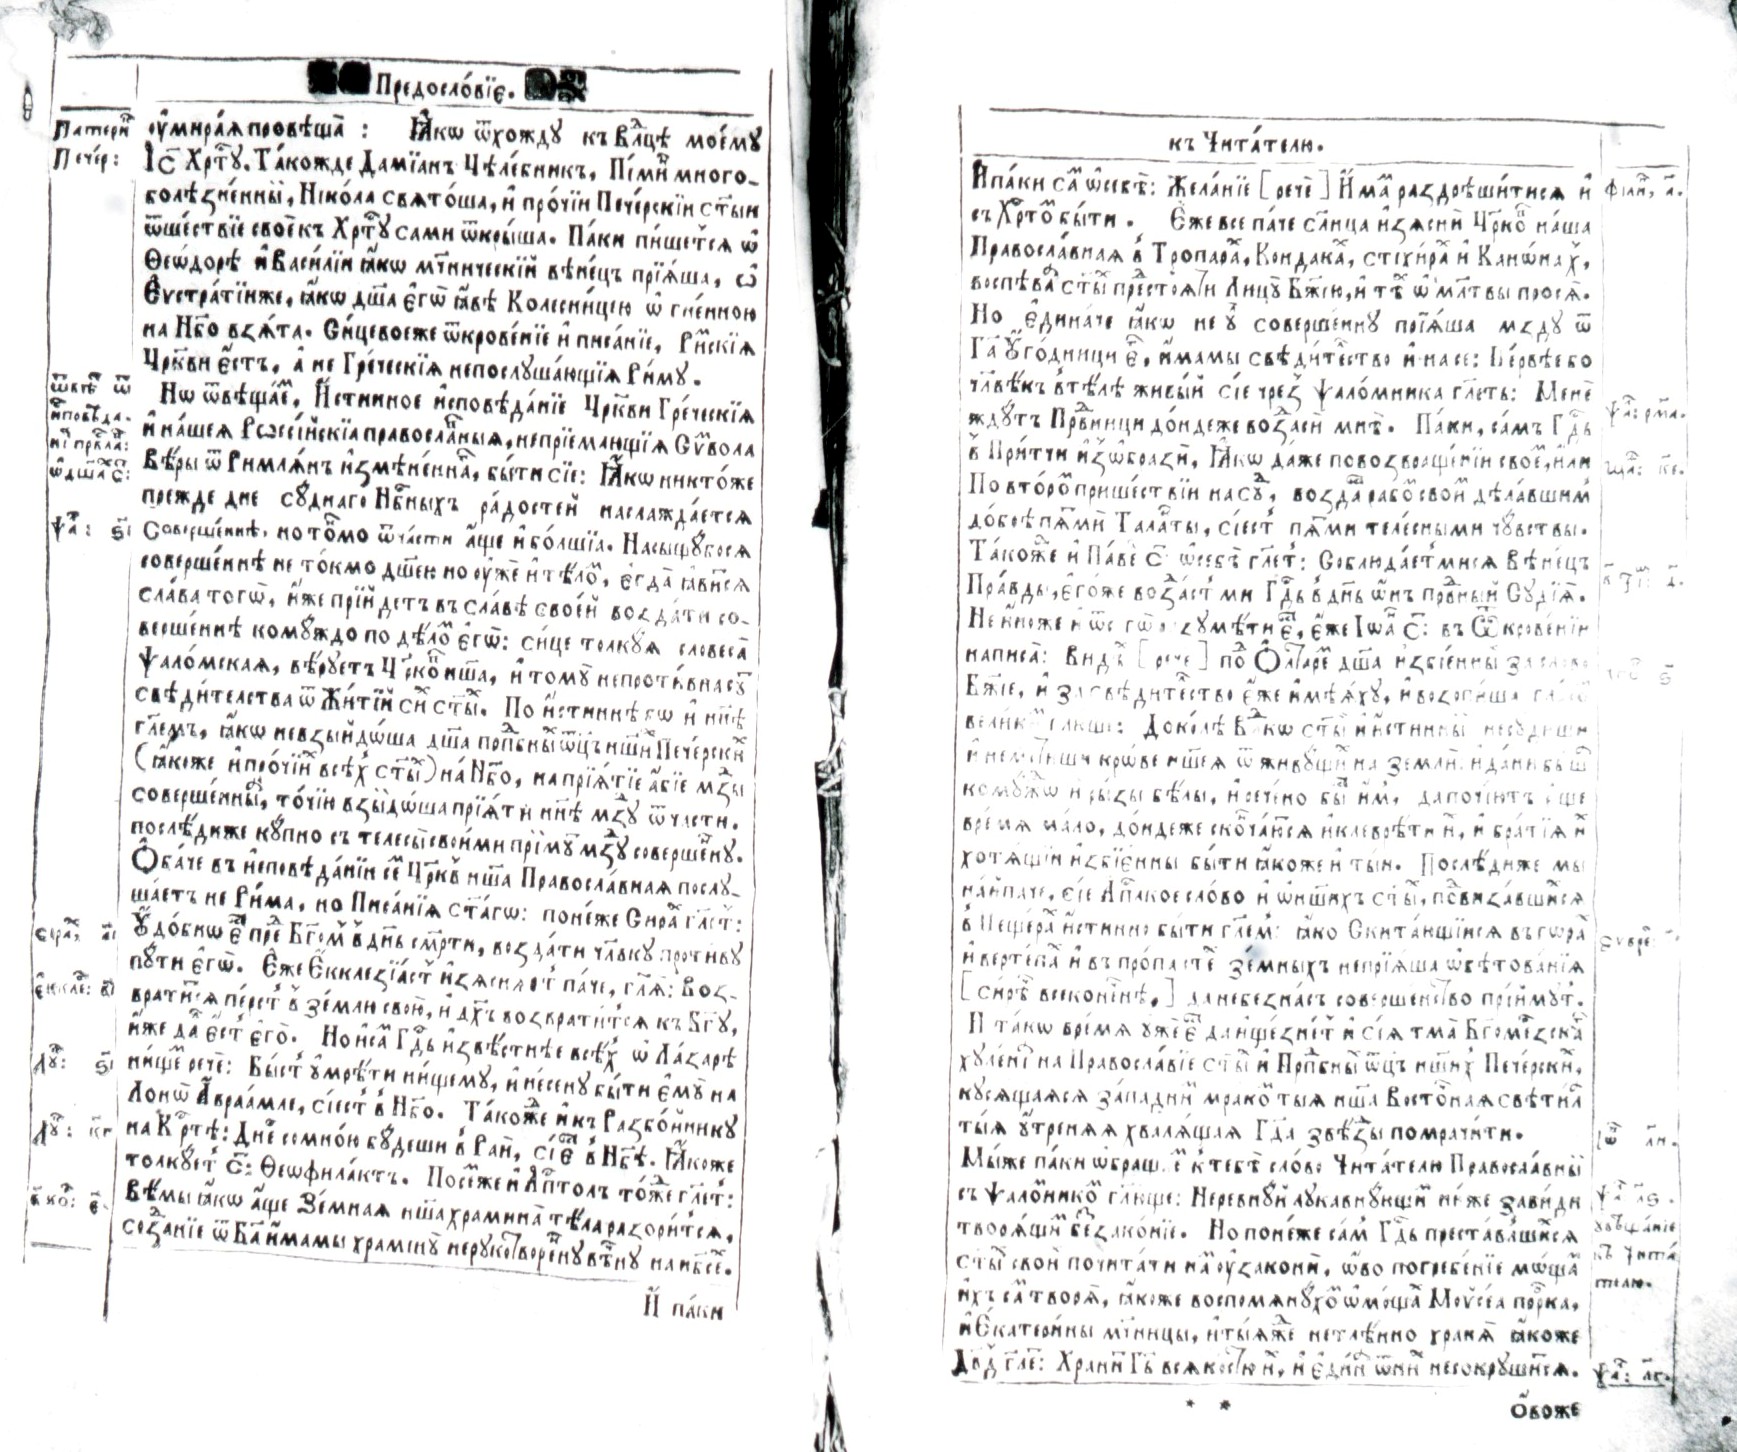 Предословїе.
Патери҃
Печер:
оумирая провѣща : Ꙗкѡ ѿхожду къ Влⷣцѣ моемѹ
Іс҃ Хрⷭтѹ. Такожде Дамїанъ Чѣлебникъ, Піминъ много-
болѣзненный, Нікола святоша, и прочїи Печерскїи ст҃ыи
ѿшествїе своекъ Хрⷭтѹ сами ѿкрыша. Паки пишетсѧ ѡ
Ѳеѡдорѣ и Василїи ꙗкѡ мч҃нический вѣнецъ прїѧша, ѡ
Еѵстратїиже, ꙗкѡ дш҃а егѡ ꙗвѣ Колесницею ѡгненною
на Нб҃о взѧта. Сицевоеже ѿкровенїе и писанїе, Римскїѧ
Црⷦви есть, а не Греческїѧ непослѹшающїѧ Римѹ.
Нѡ ѿвѣщаем, Истинное исповѣданїе Црⷦви Греческїѧ
и нашеѧ Рѡссїйскїѧ православныѧ, непрїемлющїѧ Сѵмвола
Вѣры ѿ Римлѧнъ измѣненна, быти сїе: Ꙗкѡ никтоже
прежде дне сѹднаго Нбⷭныхъ радостей наслаждаетсѧ
Совершеннѣ, но токмо ѿчасти аще и болшїѧ. Насыщѹсѧ
совершеннѣ не токмо дш҃ею но ѹже и тѣлом, егда ꙗвитсѧ
слава тогѡ, иже прїйдетъ въ славѣ своей воздати со-
вершеннѣ комѹждо по дѣлом егѡ: сице толкѹѧ словеса
Ѱаломскаѧ, вѣрѹетъ Црⷦовь нш҃а, и томѹ непротивна сѹть
свѣдителства ѿ Житїй сих ст҃ых. По истиннѣ бо и нн҃ѣ
гл҃емъ, ꙗкѡ невзыйдѡша дш҃а прⷣпбных ѿц҃ъ нш҃их Печерских
(ꙗкоже и прочїих всѣх ст҃ых) на Нб҃о, на прїѧтїе абїе мзды
совершенный, точїи взыйдѡша прїѧти нн҃ѣ мздѹ ѿчасти.
послѣдиже кѹпно съ телесы своими прїимѹт мздѹ совершеннѹ.
Обаче въ исповѣданїи сем Црⷦовь нш҃а Православнаѧ послѹ-
шаетъ не Рима, но Писанїѧ ст҃агѡ: понеже Сирах гл҃ет:
Ѹдобнѡ есть пред Бг҃ом в днь смрти, воздати чл҃вкѹ противѹ
пѹти егѡ. Еже Екклезїаст изѧснѧет паче, гл҃ѧ: Воз-
вратитсѧ персть в землю свою, и дх҃ъ возвратитсѧ къ Бг҃ѹ,
иже даде есть его. Но и сам Гдⷭь извѣстнѣе всѣх ѡ Лазарѣ
нищем рече: Бысть ѹмрѣти нищемѹ, и несенѹ быти емѹ на
Лонѡ Авраамле, сїест в Нб҃о. Такоже и къ Разбойникѹ
на Крⷭтѣ: Днесь со мною бѹдеши в Раи, сїест в Нб҃ѣ. Ꙗкоже
толкѹет ст҃: Ѳеѡфилактъ. Посемже и Апⷭтолъ тоже гл҃ет:
Вѣмы ꙗкѡ аще Земнаѧ нш҃а храмина тѣла разоритсѧ,
созданїе ѿ Бг҃а имамы храминѹ нерѹкотвореннѹ вѣчнѹ на нбⷭсех.
И паки
ѿвѣт ѿ
исповѣда-
нїѧ правосла:
ѡ дш҃ах ст҃:
Ѱал: ѕ҃і
сірах, а҃і
екклес: в҃і
Лѹк: ѕ҃і
Лѹк: к҃г
в҃ кор: е҃.
къ Читателю.
И паки сам ѡ себѣ: Желанїе [рече] Имам раздрѣшитисѧ и
съ Хрⷭтом быти. Еже все паче слнца изѧснит Црⷦовь наша
Православнаѧ в Тропарах, Кондаках, стїхирах и Канѡнах,
воспѣваѧ ст҃ых престоѧти Лицѹ Бж҃їю, и тѣх ѡ мл҃твы просѧ.
Но единаче ꙗкѡ не ѹ совершеннѹ прїѧша мздѹ ѿ
Гдⷭа Ѹгодници его, имамы свѣдителство и на се: Первѣе бо
чл҃вѣкъ в тѣлѣ живый сїе чрез Ѱаломника гл҃етъ: Мене
ждѹтъ Првⷣници дондеже воздаси мнѣ. Паки, самъ Гдⷭь
в Притчи изѡбрази, Ꙗкѡ даже по возвращенїи своем, или
По втором пришествїи на сѹд, воздаст рабом своим дѣлавшим
добрѣ пѧтми Таланты, сїест пѧтми телесными чѹвствы.
Такоже и Павел ст҃ ѡ себѣ гл҃ет: Соблюдаетмисѧ Вѣнецъ
Правды, егоже воздаст ми Гдⷭь в днь ѡнъ првⷣный Сѹдїѧ.
написа: Видѣх [рече] под Олтарем дш҃а избїенных за слово
Бж҃їе, и за свѣдителство еже имѣѧхѹ, и возопиша гласом
великим гл҃юще: Доколѣ Влⷣко ст҃ый и истинный несѹдиши
и не мстиши крове нш҃еѧ ѿ живѹщих на земли. и даны быша
комѹждѡ их ризы бѣлы, и речено бысть им, да почїютъ еще
времѧ мало, дондеже скончаютсѧ и клеврѣти их, и братїѧ их
хотѧщїи избїенны быти ꙗкоже и тыи. Послѣдиже мы
наипаче, сїе Апⷭлкое слово и ѡ нш҃ихъ ст҃ых, подвизавшихсѧ
в Пещерах истинно быти гл҃ем: ꙗко Скитающїисѧ въ горах
и вертепах и въ пропастех земныхъ непрїѧша ѡбѣтованїѧ
[сирѣч всеконечнѣ.] да не без нас совершенство прїимѹт.
И такѡ времѧ ѹже есть да ищезнет и сїѧ тма Бг҃омерзска
хѹленїѧ на Православїе ст҃ых и Прⷣпбных ѿц҃ъ нш҃их Печерских,
кѹсѧщаѧсѧ западним мраком тыѧ нш҃а Восточнаѧ свѣтила
тыѧ ѹтренѧѧ хвалѧщаѧ Гдⷭа звѣзды помрачити.
Мыже паки ѡбращаем к тебѣ слово Читателю Православный
съ Ѱаломником гл҃юще: Неревнѹй лѹкавнѹющим ниже завиди
творѧщим беззаконїе. Но понеже сам Гдⷭь преставльшихсѧ
ст҃ых своих почитати нам ѹзакони, ѡво погребенїе мощам
ихъ сам творѧ, ꙗкоже воспомѧнѹхом ѡ мощах Моѵсеа прⷪрка,
и Екатерины мч҃ницы, и тыѧже нетлѣнно хранѧ ꙗкоже
Дв҃дъ гл҃ет: Хранит Гдⷭь всѧ кости их, и един ѿ них несокрѹшитсѧ.
* *
Ѡвоже
філіп, а҃.
Ѱал: рм҃а.
мат: к҃е.
в҃ Тім: д҃.
апок: ѕ҃
еѵре:
Іѡв л҃и.
Ѱал: л҃ѕ.
ѹвѣщанїе
къ чита
телю.
Ѱал: л҃г.